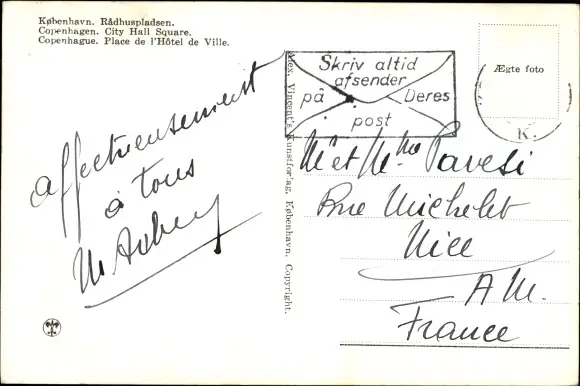 København. Rådhuspladsen.
Copenhagen. City Hall Square.
Copenhague. Place de l'Hôtel de Ville.
Skriv altid
afsender
på Deres
post
Ægte foto
K.
Alex. Vincent's Kunstforlag, København. Copyright.
affectueusement
à tous
Mr et Mme Pavesi
Rue Michelet
Nice
A M.
France